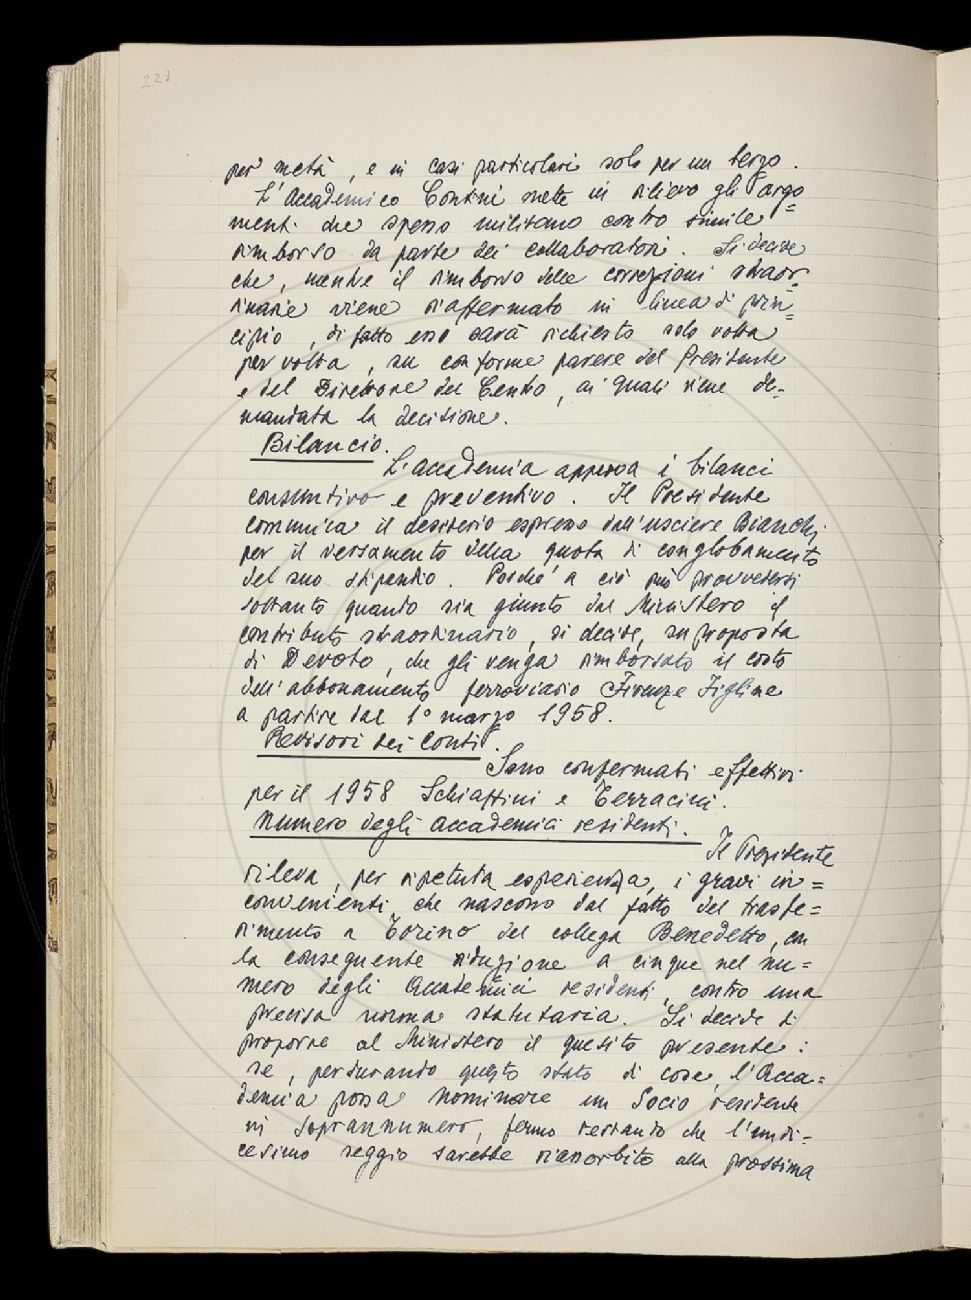 223
per metà, e in casi particolari solo per un terzo.
L'Accademico Contini mette in rilievo gli argo=
menti che spesso militano contro simile
rimborso da parte dei collaboratori. Si decide
che, mentre il rimborso delle correzioni straor=
dinarie viene riaffermato in linea di prin=
cipio, di fatto esso sarà richiesto solo volta
per volta, su conforme parere del Presidente
e del Direttore del Centro, ai quali viene de=
mandata la decisione.
Bilancio.
L'Accademia approva i bilanci
consuntivo e preventivo. Il Presidente
comunica il desiderio espresso dall'usciere Bianchi
per il versamento della quota di conglobamento
del suo stipendio. Poiché a ciò può provvedersi
soltanto quando sia giunto dal Ministero il
contributo straordinario, si decide, su proposta
di Devoto, che gli venga rimborsato il costo
dell'abbonamento ferroviario Firenze Figline
a partire dal 1° marzo 1958.
Revisori dei Conti.
Sono confermati effettivi
per il 1958 Schiaffini e Terracini.
Numero degli accademici residenti.
Il Presidente
rileva, per ripetuta esperienza, i gravi in=
convenienti che nascono dal fatto del trasfe=
rimento a Torino del collega Benedetto, con
la conseguente riduzione a cinque nel nu=
mero degli Accademici residenti, contro una
precisa norma statutaria. Si decide di
proporre al Ministero il quesito presente:
se, perdurando questo stato di cose, l'Acca=
demia possa nominare un Socio residente
in soprannumero, fermo restando che l'undi=
cesimo seggio sarebbe riassorbito alla prossima